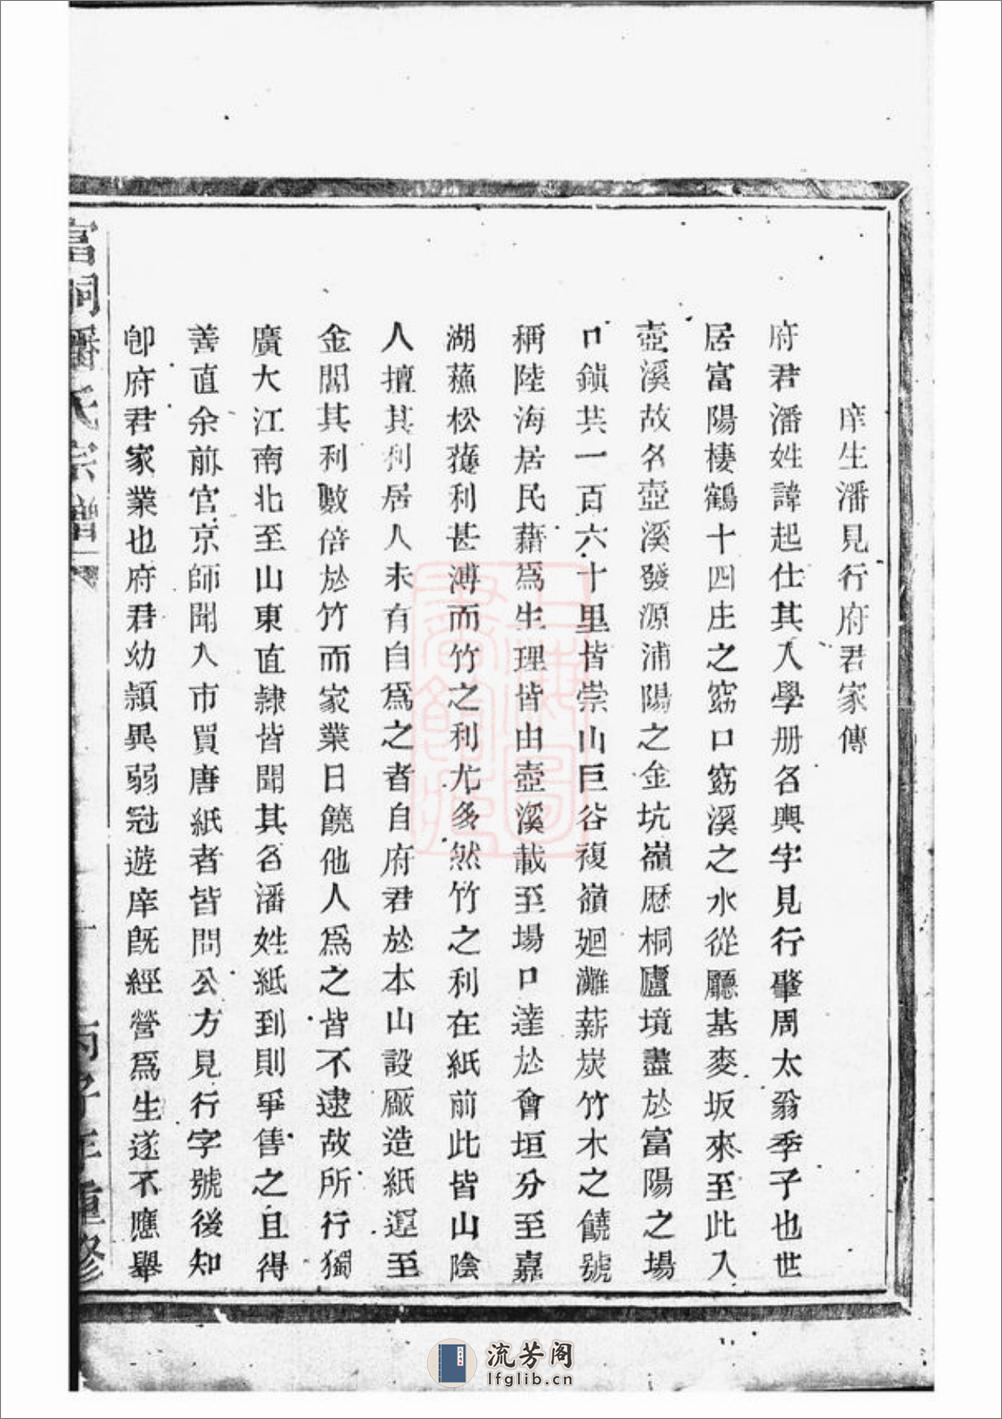 庠生潘見行府君家傳
府君潘姓諱起仕其入學册名輿字見行肇周太翁季子也世
居富陽棲鶴十四庄之窈口窈溪之水從廳基麥坂來至此入
壺溪故名壺溪發源浦陽之金坑嶺歷桐廬境盡於富陽之場
口鎮共一百六十里皆崇山巨谷複嶺廻灘薪炭竹木之饒號
稱陸海居民藉爲生理皆由壺溪載至場口達於會垣分至嘉
湖蘇松獲利甚溥而竹之利尤多然竹之利在紙前此皆山陰
人擅其利居人未有自爲之者自府君於本山設廠造紙運至
金閶其利數倍於竹而家業日饒他人爲之皆不逮故所行獨
廣大江南北至山東直隸皆聞其名潘姓紙到則爭售之且得
善直余前官京師聞入市買唐紙者皆問公方見行字號後知
卽府君家業也府君幼穎異弱冠遊庠旣經營爲生遂不應舉
富桐潘氏宗譜
丙子年重修
上海圖書館藏
流芳阁
lfglib.cn